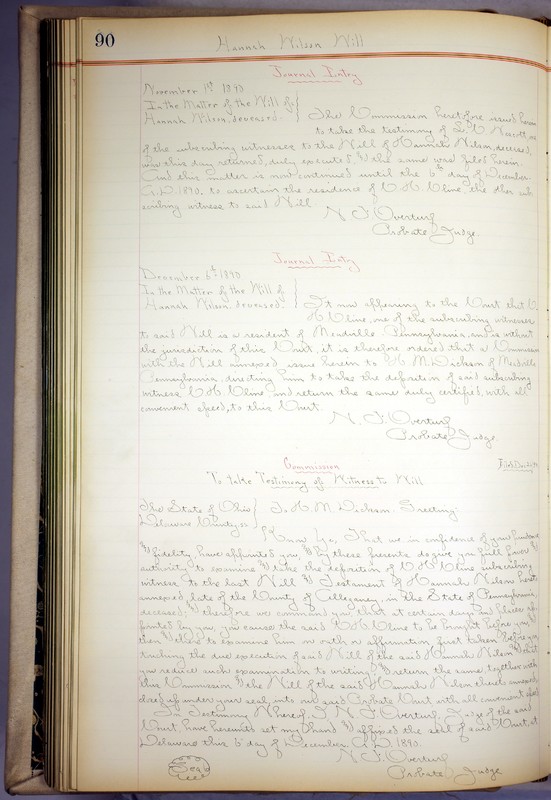 90
Hannah Wilson Will
Journal Entry
November 1st 1890
In the Matter of the Will of
Hannah Wilson, deceased.
The Commission heretofore issued herein
to take the testimony of one
of the subscribing witnesses to the Will of Hannah Wilson, deceased,
was this day returned, duly executed, & the same was filed herein.
And this matter is now continued until the 6th day of December
A.D. 1890, to ascertain the residence of C H Cline, the other sub-
scribing witness to said Will.
N. F. Overturf
Probate Judge.
Journal Entry
December 6th 1890
In the Matter of the Will of
Hannah Wilson, deceased.
It now appearing to the Court that C.
H Cline, one of the subscribing witnesses
to said Will is a resident of Meadville, Pennsylvania, and is without
the jurisdiction of this Court, it is therefore ordered that a Commission
with the Will annexed, issue herein to H. M. Dickson of Meadville
Pennsylvania, directing him to take the deposition of said subscribing
witness C H. Cline, and return the same duly certified, with all
convenient speed, to this Court.
N. F. Overturf
Probate Judge.
Commission
Filed Dec
To take Testimony of Witness to Will
The State of Ohio
To H. M. Dickson, Greeting:
Delaware County, ss
Know Ye, That we in confidence of your prudence
& fidelity, have appointed you & by these presents do give you full power &
authority to examine & take the deposition of C H Cline subscribing
witness to the last Will & Testament of Hannah Wilson hereto
annexed, late of the County of Allegheny, in the State of Pennsylvania,
deceased; & therefore we command you that at certain days and places ap-
pointed by you, you cause the said C H Cline to be brought before you, &
then & there to examine him on oath or affirmation first taken before you,
touching the due execution of said Will of the said Hannah Wilson & that
you reduce such examination to writing & return the same, together with
this Commission & the Will of the said Hannah Wilson annexed,
closed up under your seal, into our said Probate Court with all convenient speed.
In Testimony Whereof, I, N. F. Overturf, Judge of the said
Court, have hereunto set my hand & affixed the seal of said Court, at
Delaware this 6 day of December A.D. 1890.
N. F. Overturf
Seal
Probate Judge